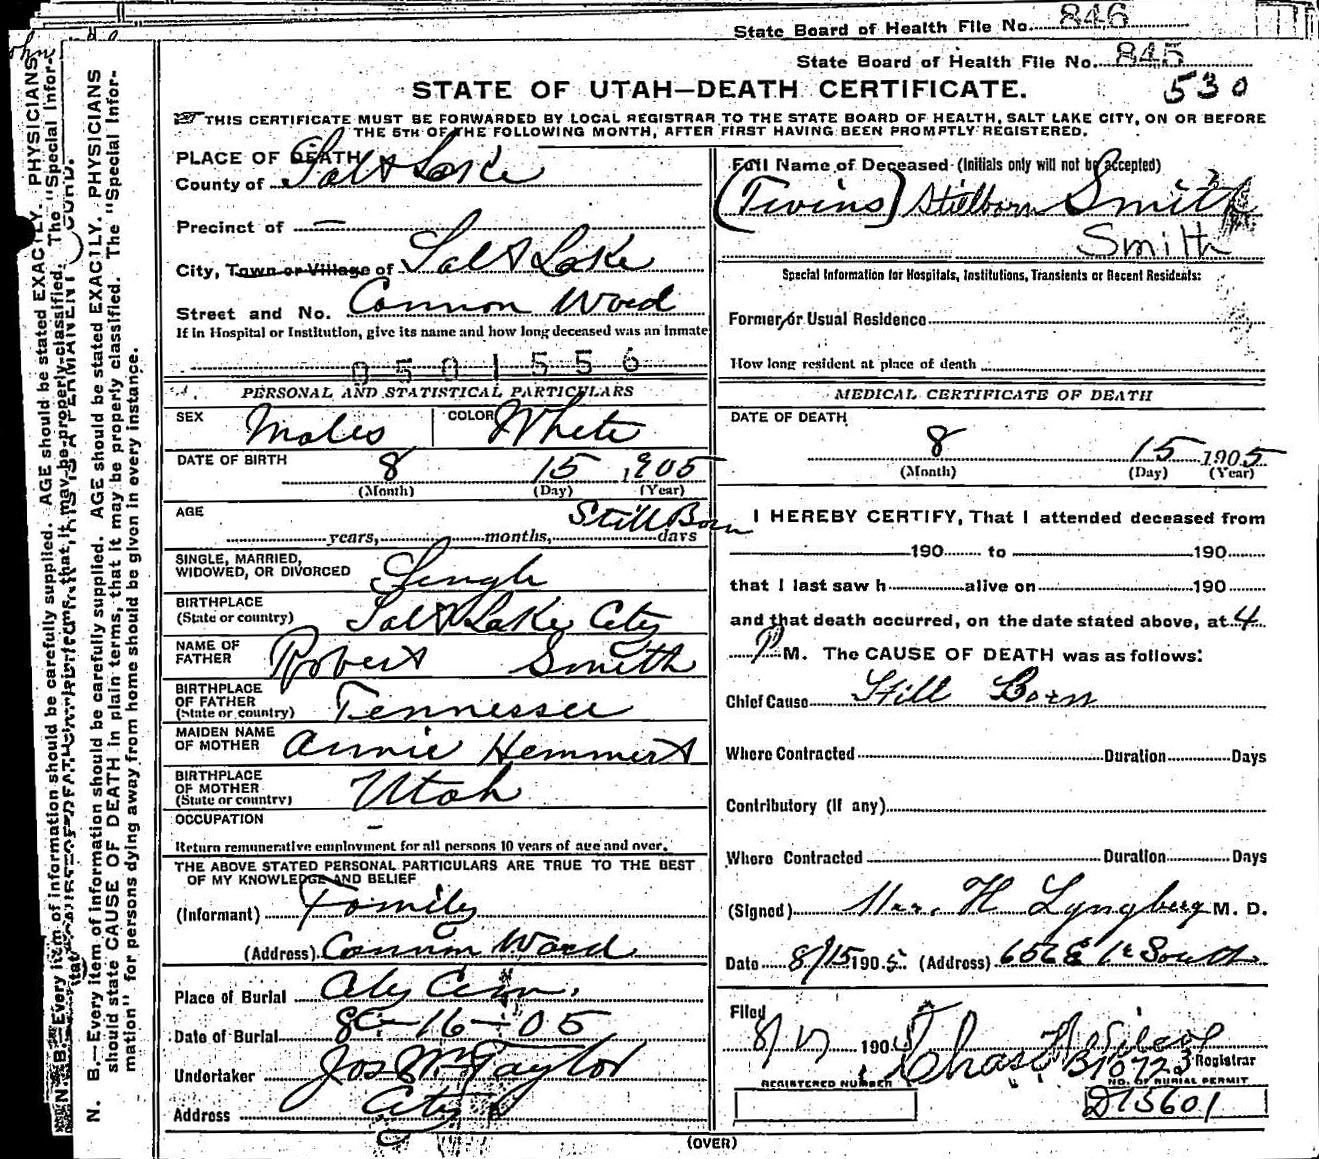 State Board of Health File No. 846
State Board of Health File No. 845
530
STATE OF UTAH—DEATH CERTIFICATE.
THIS CERTIFICATE MUST BE FORWARDED BY LOCAL REGISTRAR TO THE STATE BOARD OF HEALTH, SALT LAKE CITY, ON OR BEFORE
THE 5TH OF THE FOLLOWING MONTH, AFTER FIRST HAVING BEEN PROMPTLY REGISTERED.
PLACE OF DEATH
County of Salt Lake
Precinct of —
City, Town or Village of Salt Lake
Street and No. Cannon Ward
If in Hospital or Institution, give its name and how long deceased was an inmate
0501556
PERSONAL AND STATISTICAL PARTICULARS
SEX Males COLOR White
DATE OF BIRTH 8 15 1905
(Month) (Day) (Year)
AGE Still Born
years, months, days
SINGLE, MARRIED,
WIDOWED, OR DIVORCED Single
BIRTHPLACE
(State or country) Salt Lake City
NAME OF
FATHER Robert Smith
BIRTHPLACE
OF FATHER
(State or country) Tennessee
MAIDEN NAME
OF MOTHER Annie Hemmert
BIRTHPLACE
OF MOTHER
(State or country) Utah
OCCUPATION –
Return remunerative employment for all persons 10 years of age and over.
THE ABOVE STATED PERSONAL PARTICULARS ARE TRUE TO THE BEST
OF MY KNOWLEDGE AND BELIEF
(Informant) Family
(Address) Cannon Ward
Place of Burial City Cem.
Date of Burial 8-16-05
Undertaker Jos Wm Taylor
Address City
Full Name of Deceased (Initials only will not be accepted)
(Twins) Stillborn Smith
Smith
Special Information for Hospitals, Institutions, Transients or Recent Residents:
Former or Usual Residence
How long resident at place of death
MEDICAL CERTIFICATE OF DEATH
DATE OF DEATH
8 15 1905
(Month) (Day) (Year)
I HEREBY CERTIFY, That I attended deceased from
190 to 190
that I last saw h alive on 190
and that death occurred, on the date stated above, at 4
P M. The CAUSE OF DEATH was as follows:
Chief Cause Still Born
Where Contracted Duration Days
Contributory (If any)
Where Contracted Duration Days
(Signed) H Lyngberg M. D.
Date 8/15 1905 (Address) 656 E South
Filed
8/17 1905 Chas Registrar
B10723
REGISTERED NUMBER NO. OF BURIAL PERMIT
D13601
(OVER)
N. B.—Every item of information should be carefully supplied. AGE should be stated EXACTLY. PHYSICIANS
should state CAUSE OF DEATH in plain terms, that it may be properly classified. The "Special Infor-
mation" for persons dying away from home should be given in every instance.